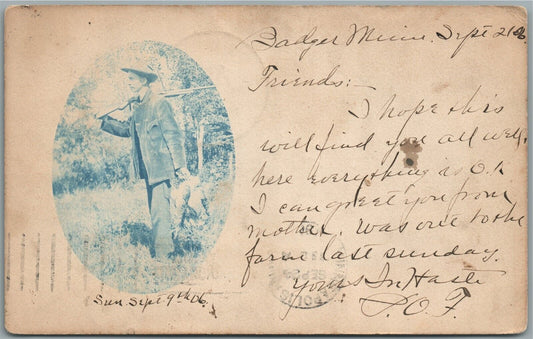 Badger Minn. Sept 21
Friends:-
I hope this
will find you all well.
here everything is O.K
I can greet you from
mother. Was out to the
farm last sunday.
yours In Haste
P.O.F.
Sun. Sept 9th 06.